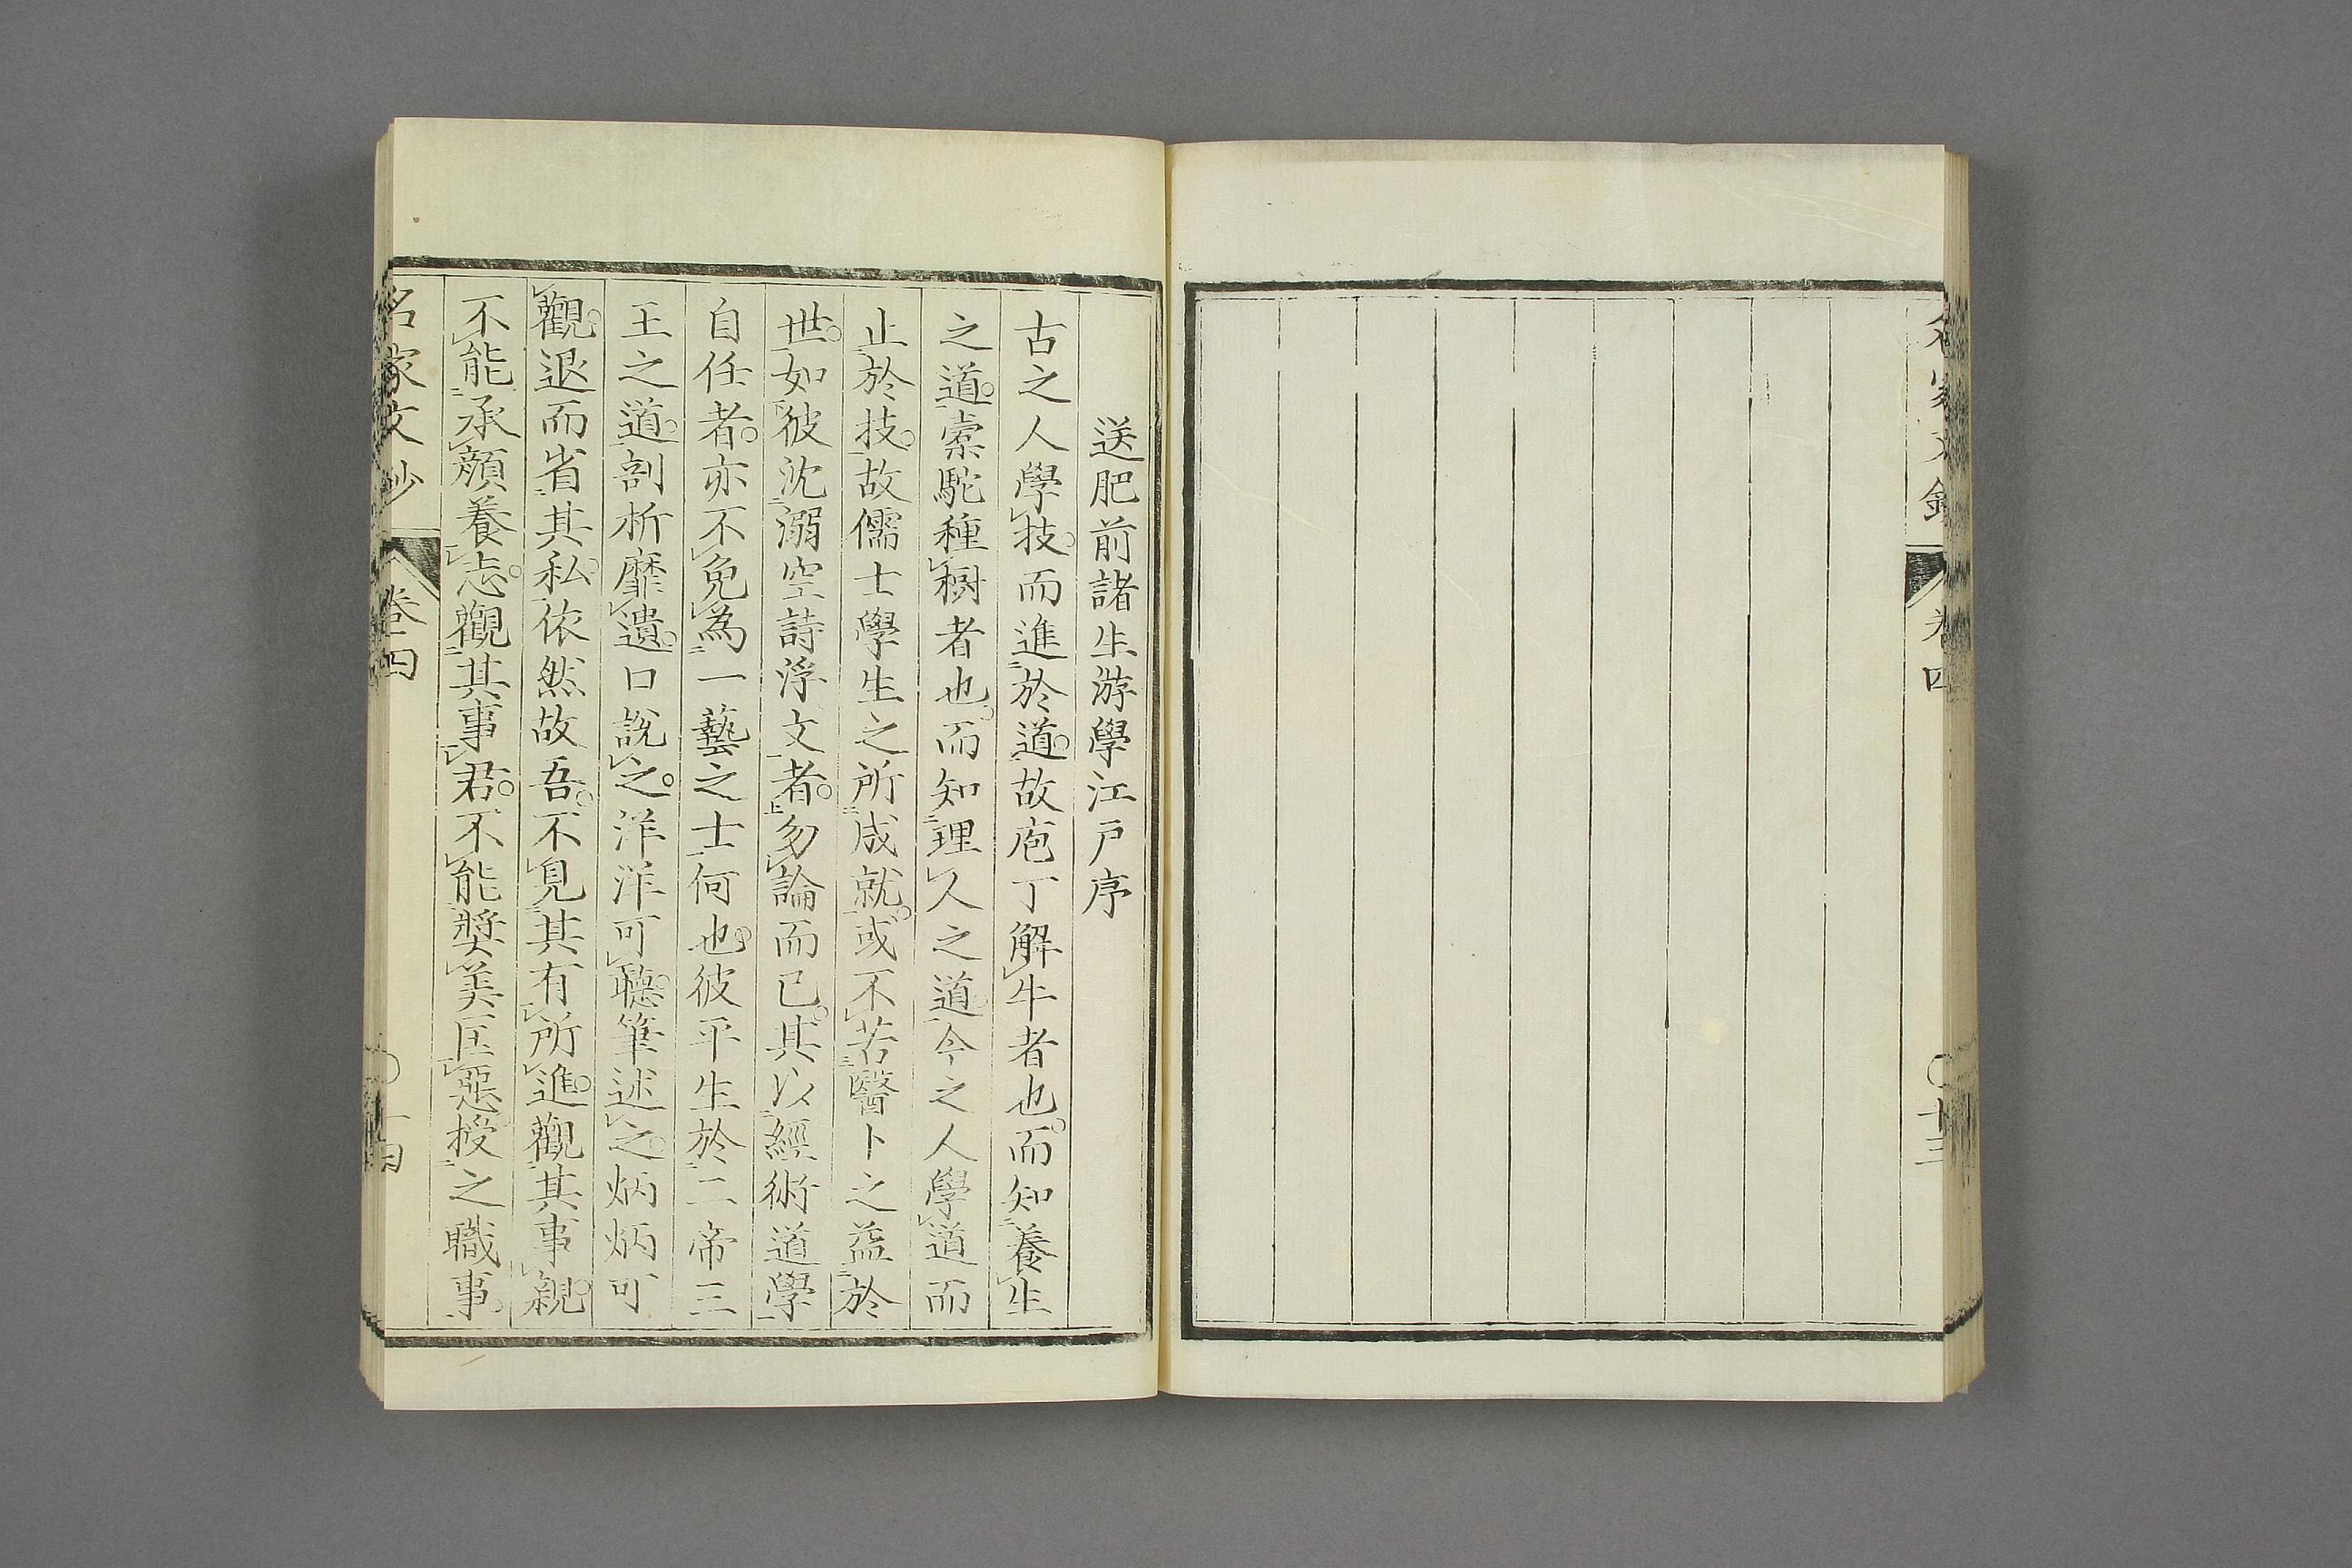 卷四
〇十三
送肥前諸生游學江戸序
古之人學技。而進於道。故庖丁解牛者也。而知養生
之道。橐駝種樹者也。而知理人之道。今之人學道而
止於技。故儒士學生之所成就。或不若醫卜之益於
世。如彼沈溺空詩浮文者。勿論而已。其以經術道學
自任者。亦不免為一藝之士何也。彼平生於二帝三
王之道。剖析靡遺。口說之。洋洋可聽。筆述之。炳炳可
觀。退而省其私。依然故吾。不見其有所進。觀其事親。
不能承顏養志。觀其事君。不能奬美匡惡。授之職事。
名家文抄 卷四 〇十四